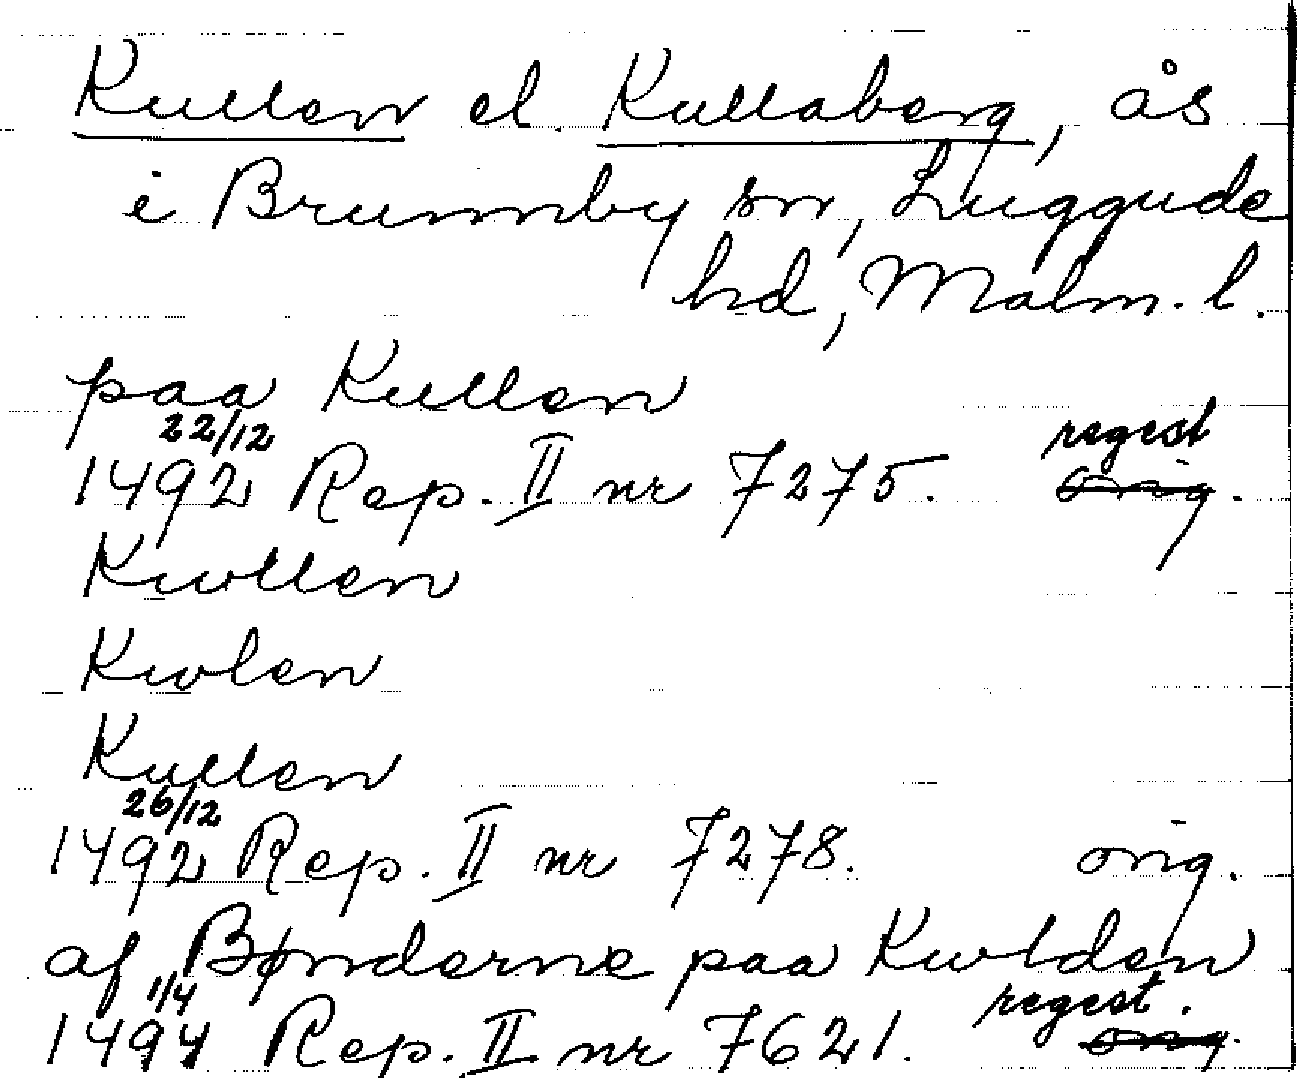 Kullen el. Kullaberg, ås
i Brunnby sn, Luggude
hd, Malm. l.
paa Kullen
22/12 regest
1492 Rep. II nr 7275. orig.
Kwllen
Kwlen
Kullen
26/12
1492 Rep. II nr 7278. orig.
af Bønderne paa Kwlden
1/4 regest.
1494 Rep. II nr 7621. orig.